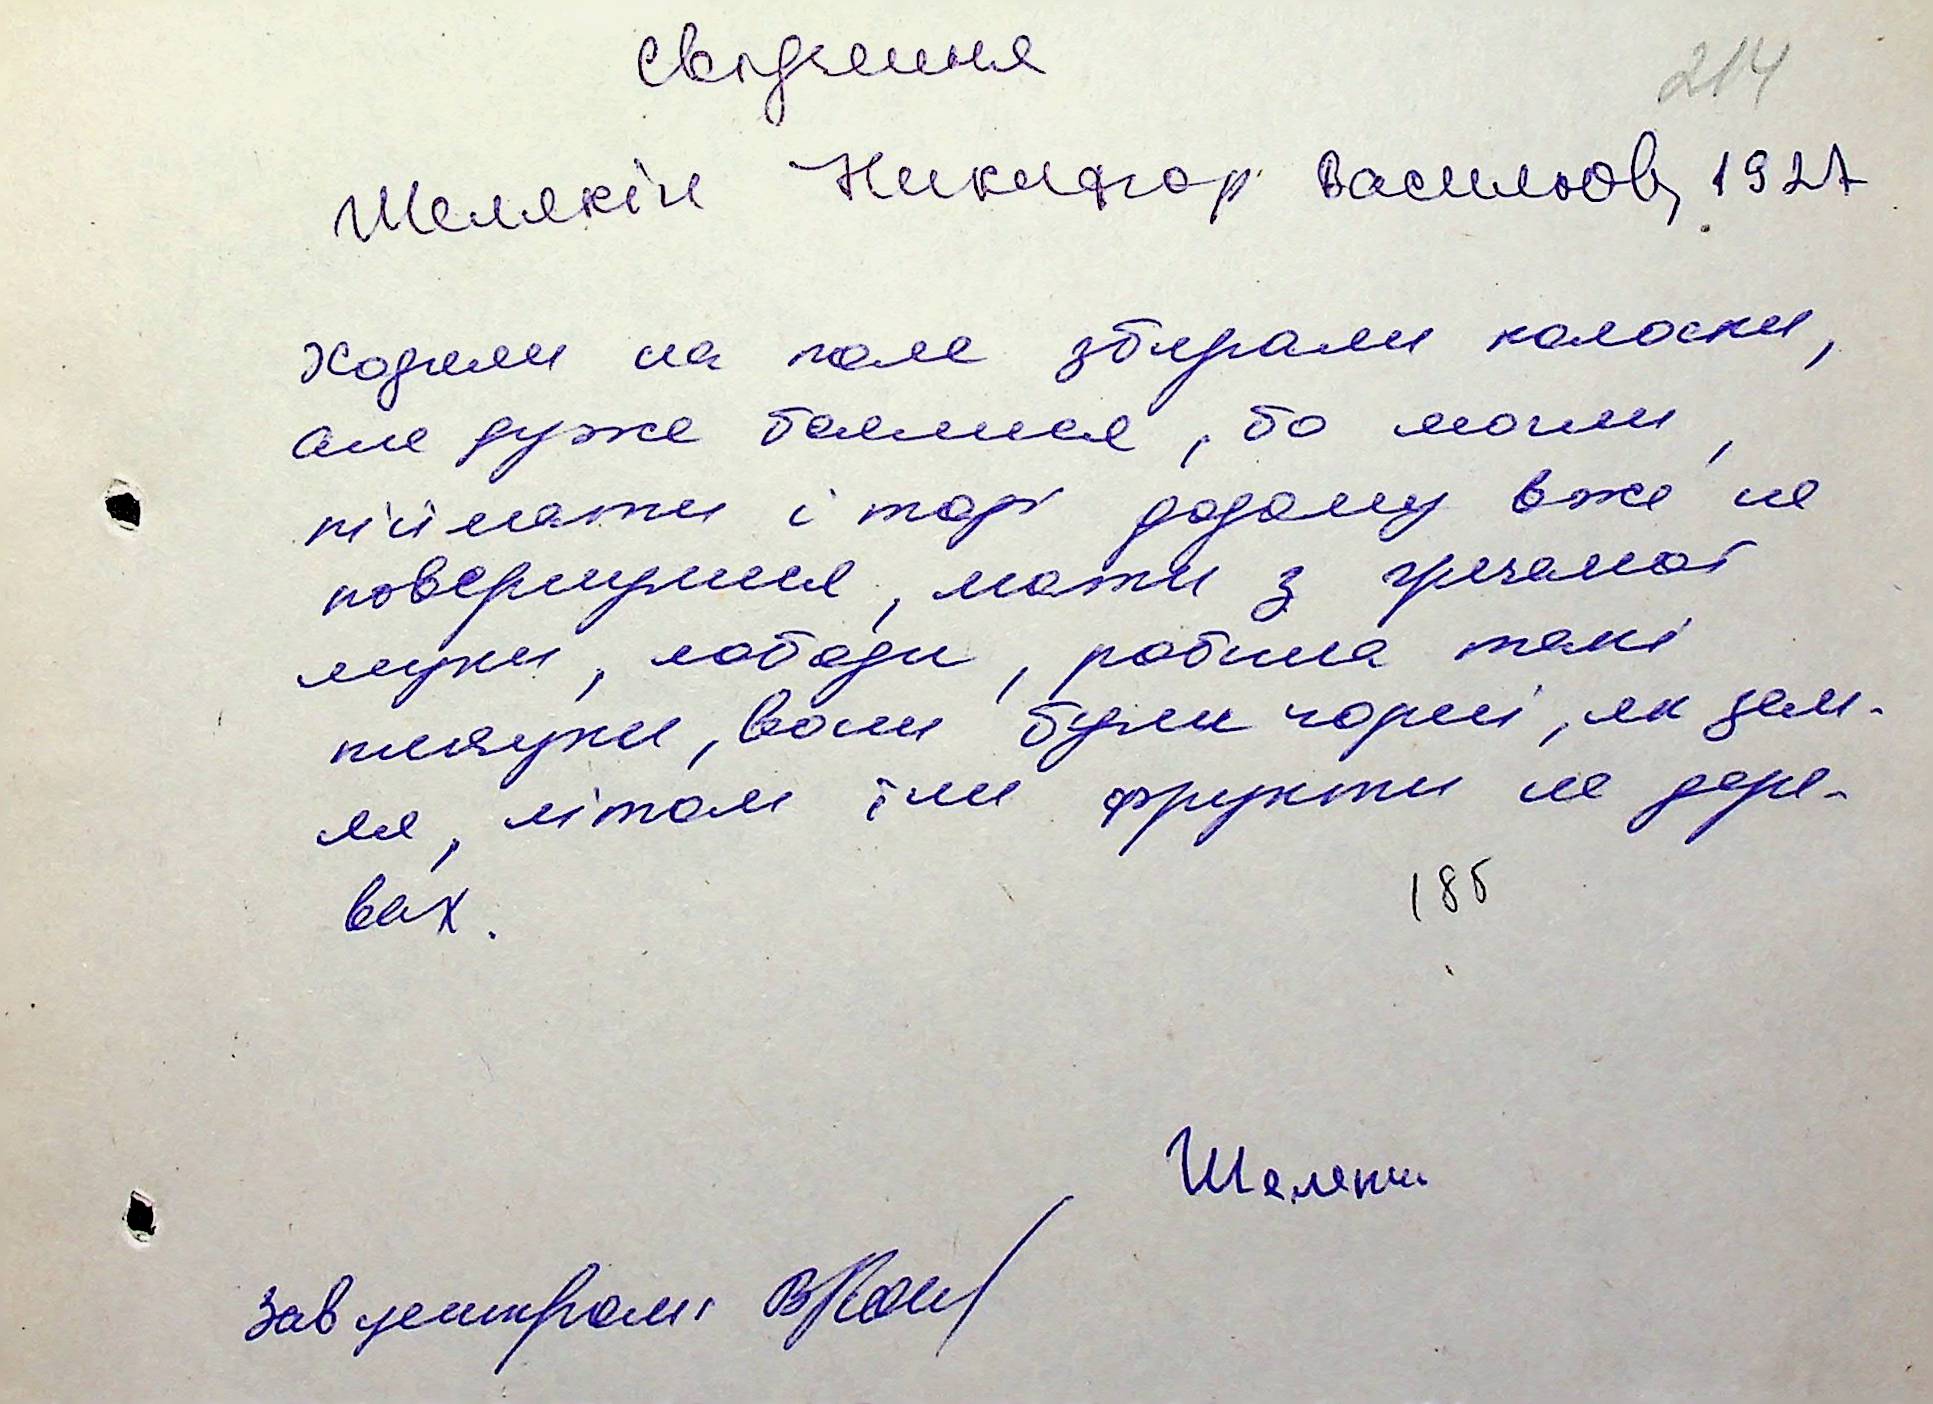 Свідчення
214
Шелякін Никифор Васильов, 1927
Ходили на поле збирали колоски,
але дуже боялися, бо могли,
піймати і тоді додому вже не
повернулися, мати з гречаної
муки, лободи, робила такі
пляцки, вони були чорні, як зем-
ля, літом їли фрукти на дере-
вах.
185
Шелякин
Зав центром